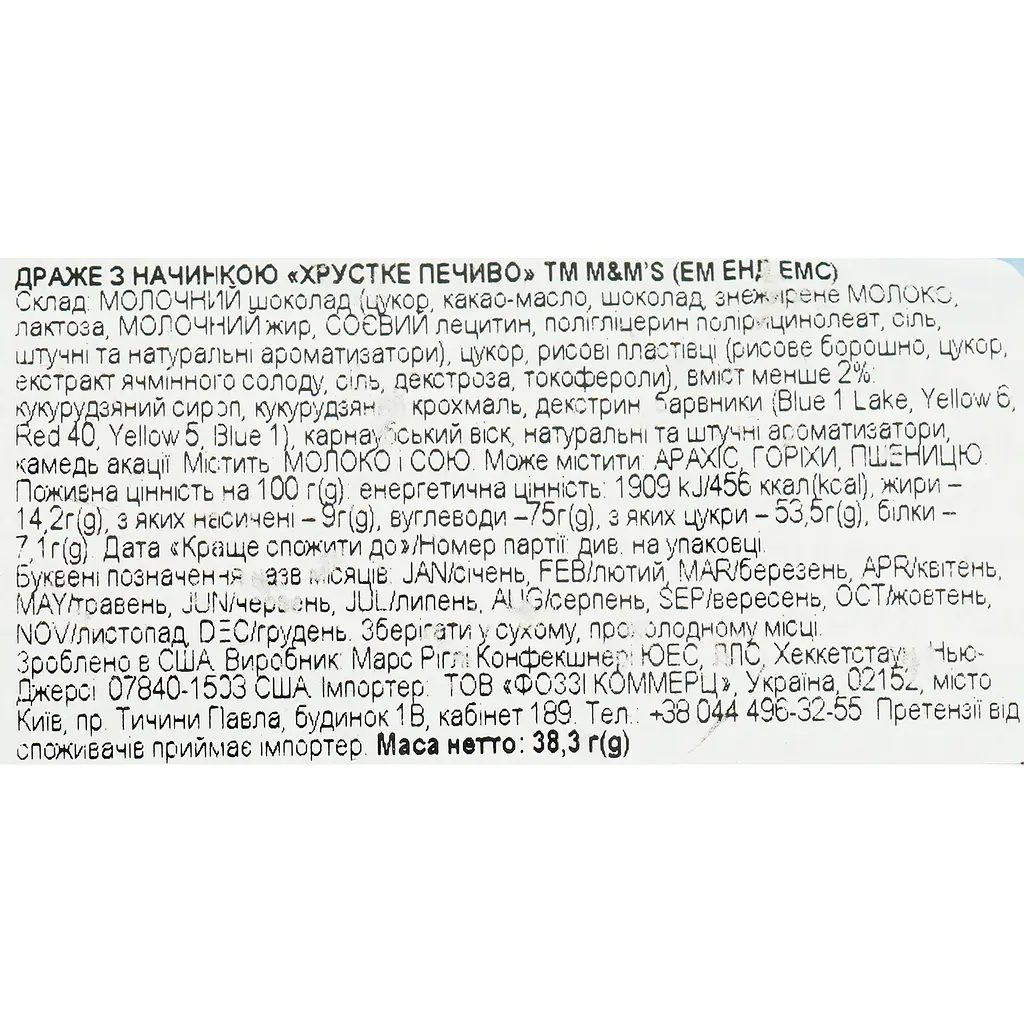 ДРАЖЕ З НАЧИНКОЮ «ХРУСТКЕ ПЕЧИВО» ТМ M&M'S (ЕМ ЕНД ЕМС)
Склад: МОЛОЧНИЙ шоколад (цукор, какао-масло, шоколад, знежирене МОЛОКО,
лактоза, МОЛОЧНИЙ жир, СОЄВИЙ лецитин, полігліцерин поліріцинолеат, сіль,
штучні та натуральні ароматизатори), цукор, рисові пластівці (рисове борошно, цукор,
екстракт ячмінного солоду, сіль, декстроза, токофероли), вміст менше 2%:
кукурудзяний сироп, крохмаль, декстрин, барвники (Blue 1 Lake, Yellow 6,
Red 40, Yellow 5, Blue 1), карнаубський віск, натуральні та штучні ароматизатори,
камедь акації. Містить: МОЛОКО і СОЮ. Може містити: АРАХІС, ГОРІХИ, ПШЕНИЦЮ.
Поживна цінність на 100 г(g): енергетична цінність: 1909 kJ/456 ккал(kcal), жири –
14,2г(g), з яких насичені – 9г(g), вуглеводи –75г(g), з яких цукри – 53,5г(g), білки –
7,1г(g). Дата «Краще спожити до»/Номер партії: див. на упаковці.
Буквені позначення назв місяців: JAN/січень, FEB/лютий, MAR/березень, APR/квітень,
MAY/травень, JUN/червень, JUL/липень, AUG/серпень, SEP/вересень, OCT/жовтень,
NOV/листопад, DEC/грудень. Зберігати у сухому, прохолодному місці.
Зроблено в США. Виробник: Марс Ріглі Конфекшнері ЮЕС, ЛЛС, Хеккетстаун, Нью-
Джерсі 07840-1503 США. Імпортер: ТОВ «ФОЗЗІ КОММЕРЦ», Україна, 02152, місто
Київ, пр. Тичини Павла, будинок 1В, кабінет 189. Тел.: +38 044 496-32-55. Претензії від
споживачів приймає імпортер. Маса нетто: 38,3 г(g)